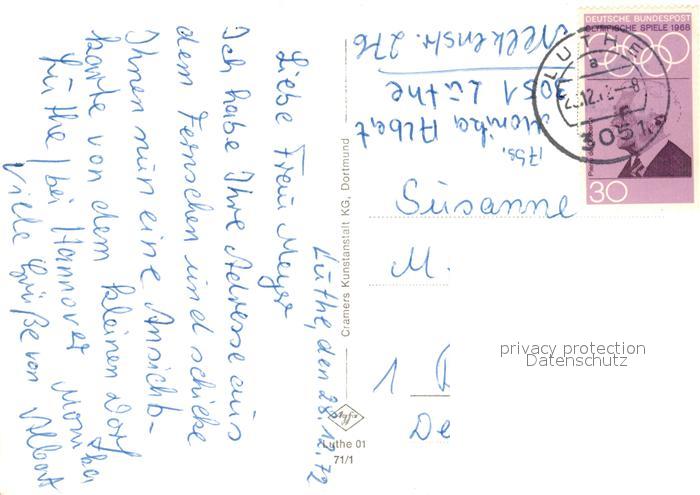 Lüthe, den 28.12.72
Liebe Frau Meyer
Ich habe Ihre Adresse aus
dem Fernsehen und schicke
Ihnen nur eine Ansicht-
karte von dem kleinen Dorf
Lüthe bei Hannover
Viele Grüße von Monika
Albert
Abs.
Monika Albert
3051 Lüthe
Nelkenstr. 276
Cramers Kunstanstalt KG, Dortmund
Agfa
Luthe 01
71/1
DEUTSCHE BUNDESPOST
OLYMPISCHE SPIELE 1968
30
LUTHE
a
3051
Susanne
M.
1
De
privacy protection
Datenschutz